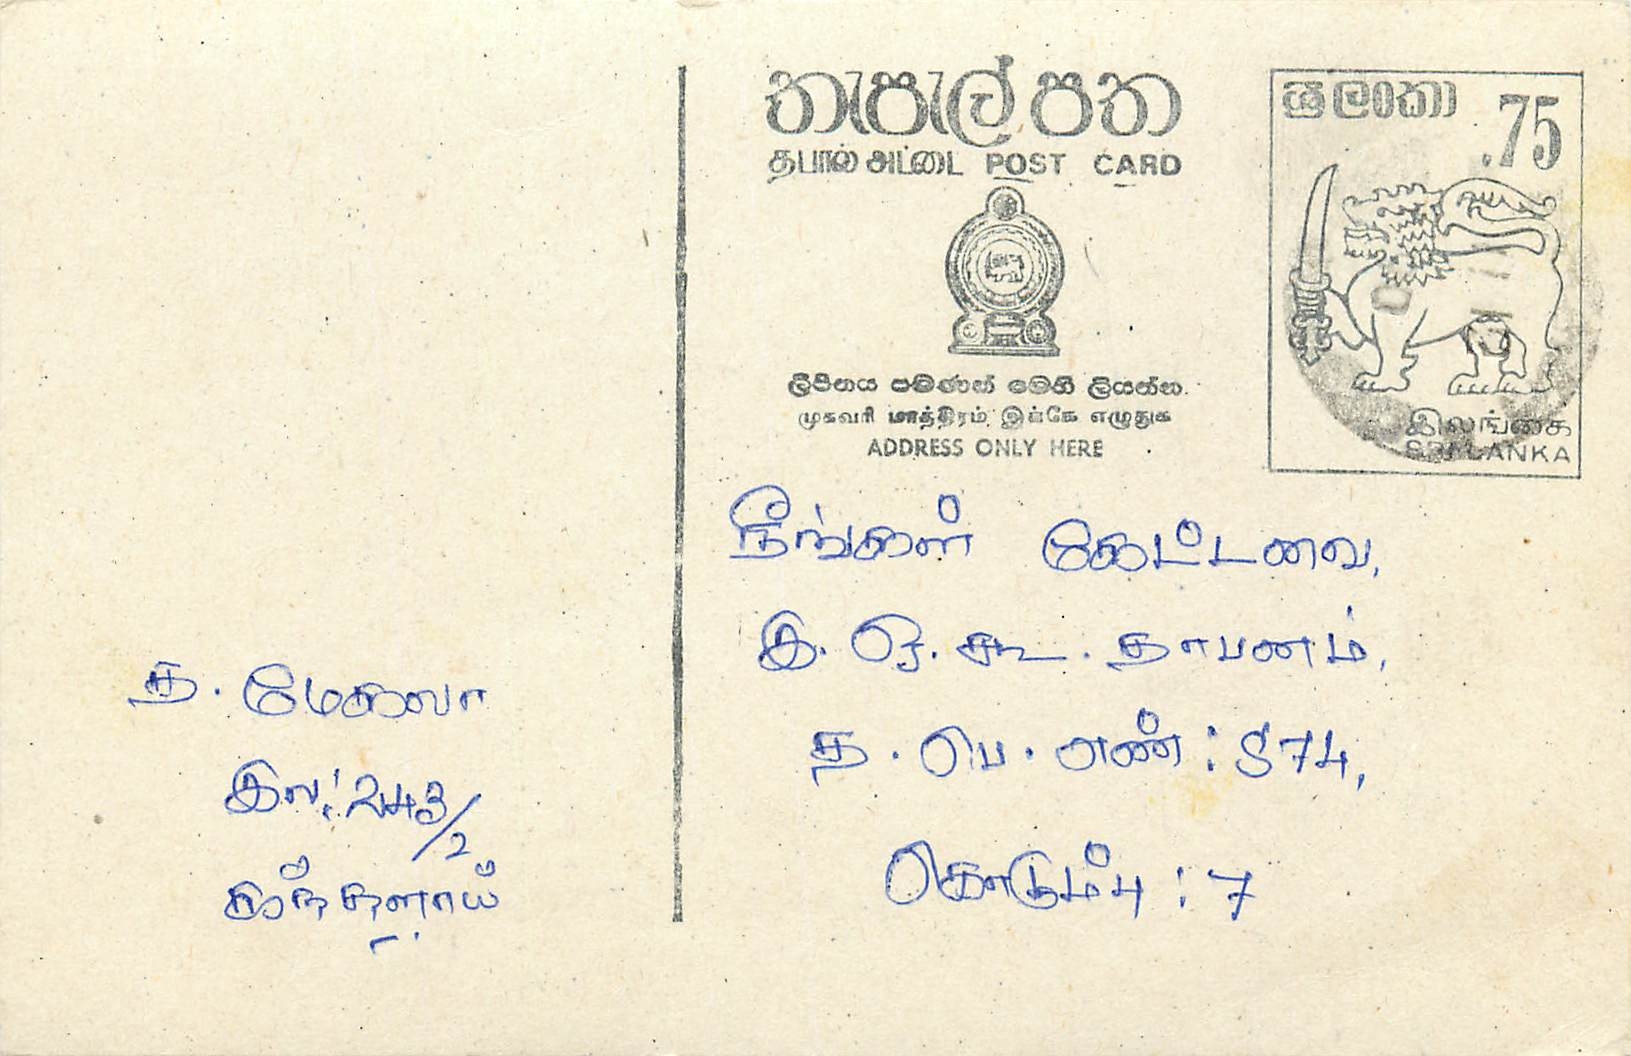 තැපැල් පත
தபால் அட்டை POST CARD
ශ්‍රී ලංකා .75
ලිපිනය පමණක් මෙහි ලියන්න.
முகவரி மாத்திரம் இங்கே எழுதுக
ADDRESS ONLY HERE
இலங்கை
SRI LANKA
நீங்கள் கேட்டவை,
இ. ஒ. கூ. தாபனம்,
த. பெ. எண் : 574,
கொழும்பு : 7
த. மேகலா
இல: 243/2
கந்தளாய்